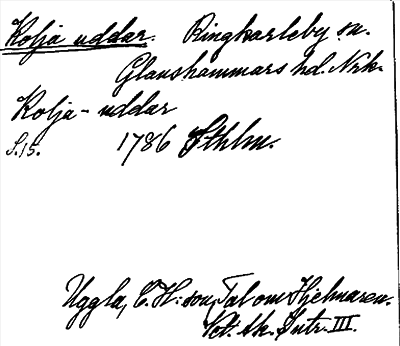 Kolja uddar. Ringkarleby sn.
Glanshammars hd. Nrk.
Kolja-uddar
S.15. 1786 Sthlm.
Uggla, C. H:son, Tal om Hjelmaren.
Vet. Ak. Intr. III.